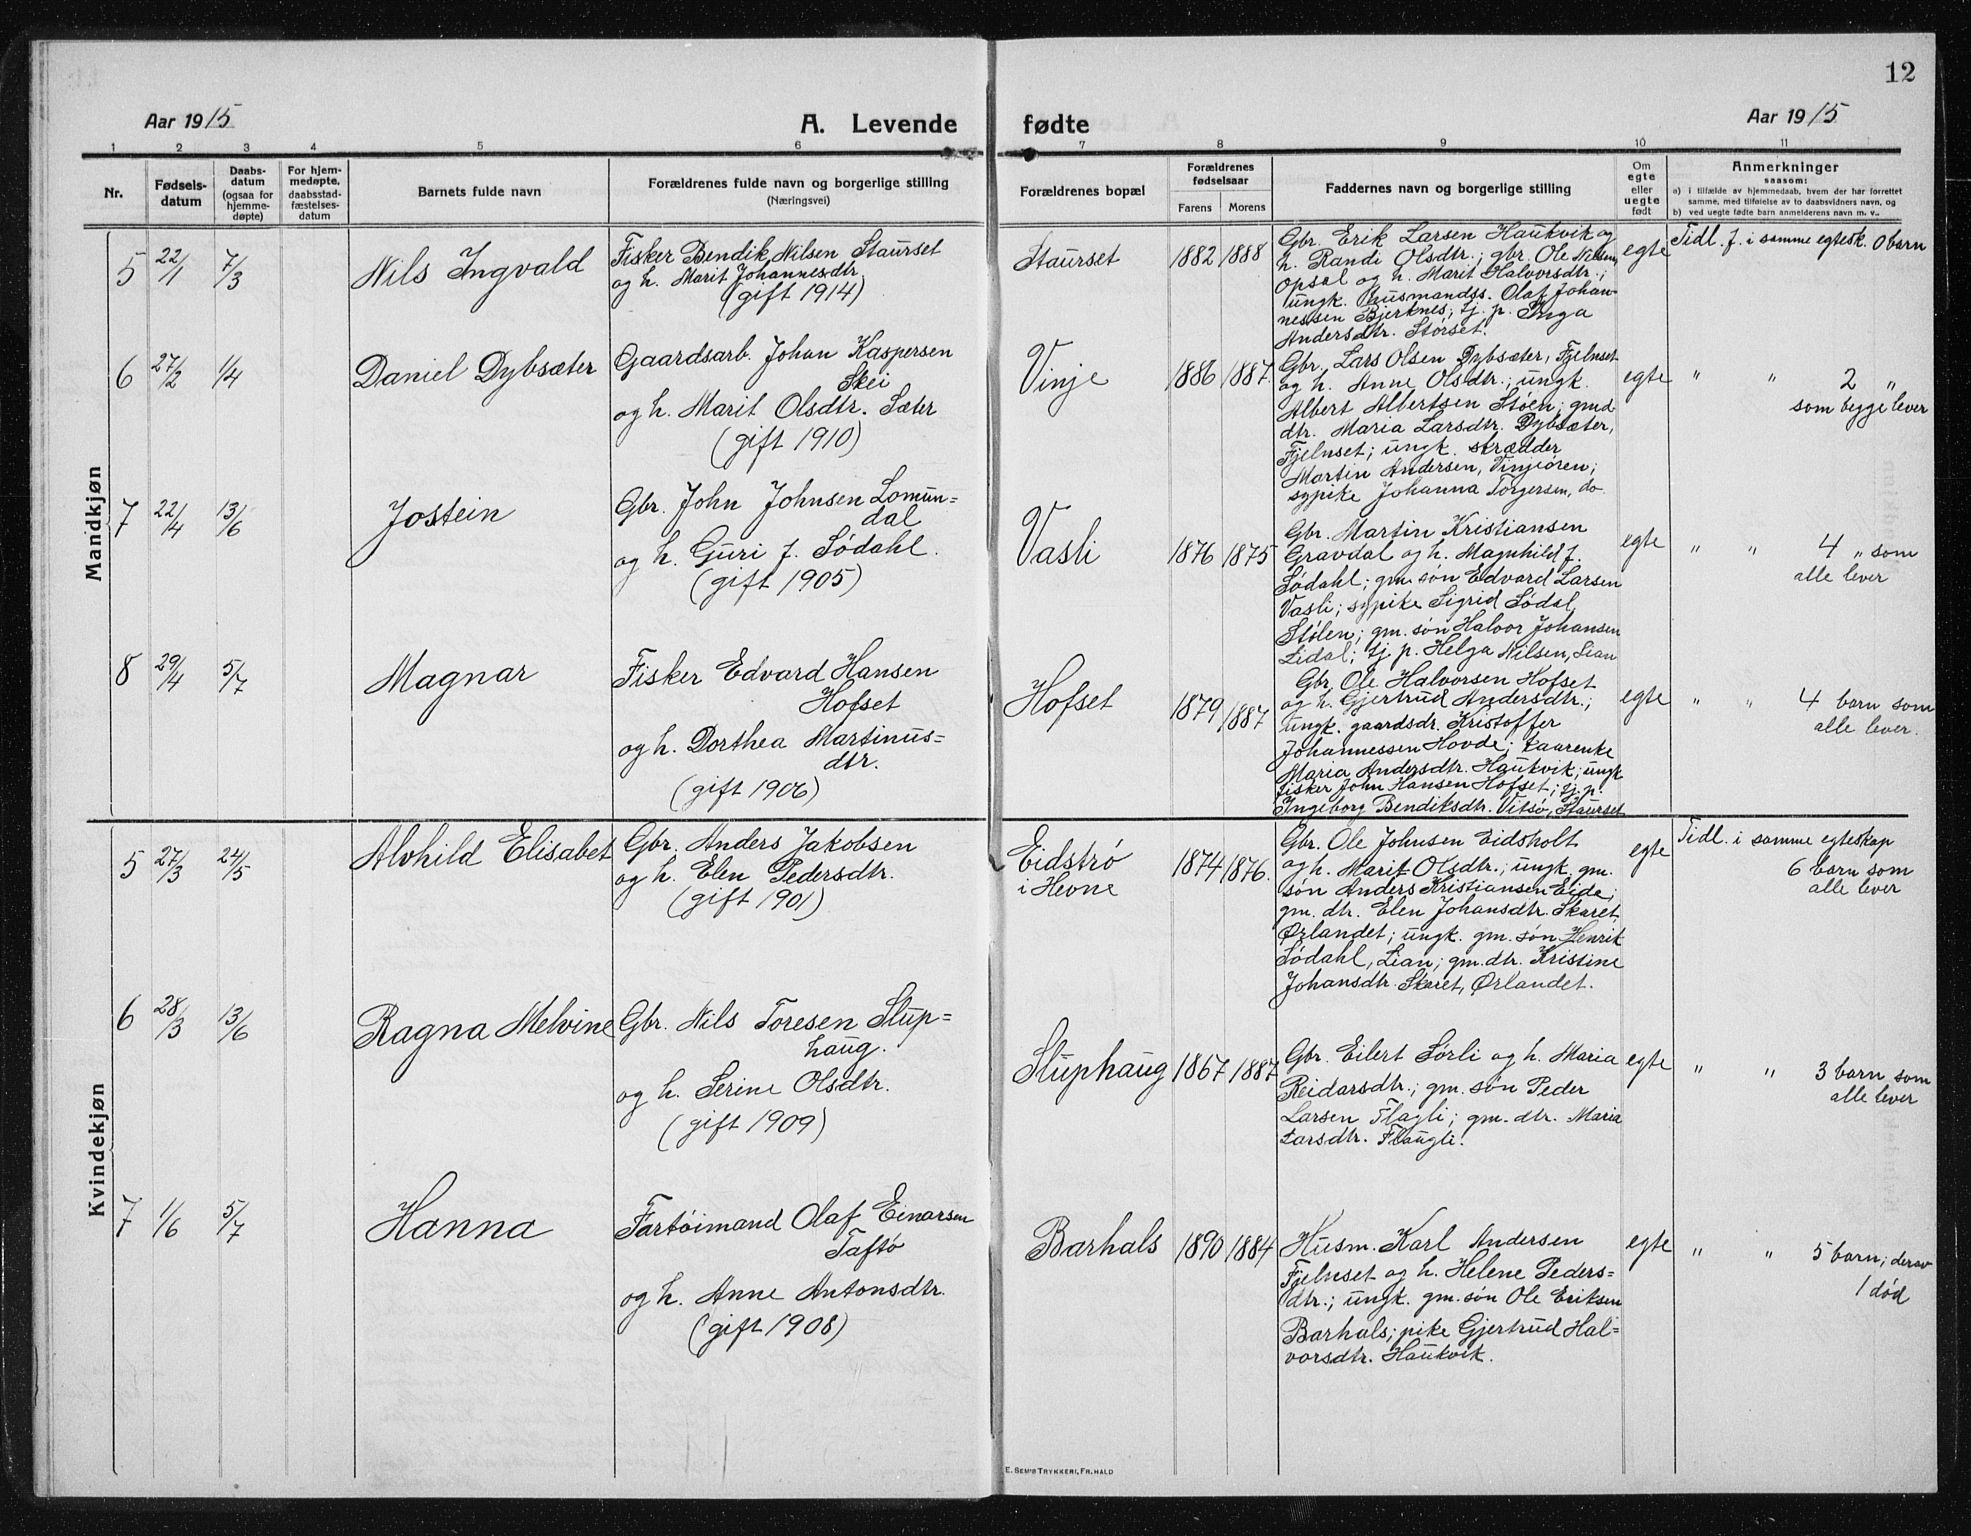 12
Aar 1915
A. Levende
fødte
Aar 1915
1 2 3 4 5 6 7 8 9 10 11
Nr.
Fødsels-
datum
Daabs-
datum
(ogsaa for
hjemme-
døpte)
For hjem-
medøpte,
daabsstad-
fæstelses-
datum
Barnets fulde navn
Forældrenes fulde navn og borgerlige stilling
(Næringsvei)
Forældrenes bopæl
Forældrenes
fødselsaar
Farens Morens
Faddernes navn og borgerlige stilling
Om
egte
eller
uegte
født
Anmerkninger
saasom:
a) i tilfælde av hjemmedaab, hvem der har forrettet
samme, med tilføielse av to daabsvidners navn, og
b) ved uegte fødte barn anmelderens navn m. v.
Mandkjøn
5 22/1 7/3
Nils Ingvald
Fisker Bendik Nilsen Staurset
og h. Marit Johannesdtr.
(gift 1914)
Staurset
1882 1888
Gbr. Erik Larsen Haukvik og
h. Randi Olsdtr.; gbr. Ole Nielsen
Opsal og h. Marit Halvorsdtr.;
ungk. husmandss. Olaf Johan-
nessen Bjerknes; tj. p. Inga
Andersdtr. Størset.
egte
Tidl. f. i samme egtesk. 0 barn
6 27/2 1/4
Daniel Dybsæter
Gaardsarb. Johan Kaspersen
Skei
og h. Marit Olsdtr. Sæter
(gift 1910)
Vinje
1886 1887.
Gbr. Lars Olsen Dybsæter, Fjelnset
og h. Anne Olsdtr.; ungk.
Albert Albertsen Støen; gmd.
dtr. Maria Larsdtr. Dybsæter,
Fjelnset; ungk. skrædder
Martin Andersen, Vinjeøren;
sypike Johanna Torgersen, do.
egte
" " 2 "
som begge lever
7 22/4 13/6
Jostein
Gbr. John Johnsen Lomun=
dal
og h. Guri f. Sødahl.
(gift 1905)
Vasli
1876 1875
Gbr. Martin Kristiansen
Gravdal og h. Magnhild f.
Sødahl; gm. søn Edvard Larsen
Vasli; sypike Sigrid Sødal,
Stølen; gm. søn Halvor Johansen
Lidal; tj. p. Helga Nilsen, Lian
egte
" " 4 " som
alle lever
8 29/4 5/7
Magnar
Fisker Edvard Hansen
Hofset
og h. Dorthea Martinus=
dtr.
(gift 1906)
Hofset
1879 1887
Gbr. Ole Halvorsen Hofset
og h. Gjertrud Andersdtr.;
ungk. gaardsdr. Kristoffer
Johannessen Hovde; taarenke
Maria Andersdtr. Haukvik; ungk
fisker John Hansen Hofset; tj. p.
Ingeborg Bendiksdtr. Vitsø, Staurset
egte
" " 4 barn som
alle lever.
Kvindekjøn
5 27/3 24/5
Alvhild Elisabet
Gbr. Anders Jakobsen
og h. Elen Pedersdtr.
(gift 1901)
Eidstrø
i Hevne
1874 1876.
Gbr. Ole Johnsen Eidsholt
og h. Marit Olsdtr.; ungk. gm.
søn Anders Kristiansen Eide;
gm. dtr. Elen Johansdtr. Skaret,
Ørlandet; ungk. gm. søn Henrik
Sødahl, Lian; gm. dtr. Kristine
Johansdtr. Skaret, Ørlandet.
egte
Tidl. i samme egteskap
6 barn som
alle lever
6 28/3 13/6
Ragna Melvine
Gbr. Nils Toresen Slup=
haug.
og h. Serine Olsdtr.
(gift 1909)
Sluphaug
1867 1887
Gbr. Eilert Sørli og h. Maria
Reidarsdtr.; gm. søn Peder
Larsen Flagli; gm. dtr. Maria
Larsdtr. Flaugli.
egte
" " 3 barn som
alle lever
7 1/6 5/7
Hanna
Fartøimand Olaf Einarsen
Taftø
og h. Anne Antonsdtr.
(gift 1908)
Barhals
1890 1884
Husm. Karl Andersen
Fjelnset og h. Helene Peders=
dtr.; ungk. gm. søn Ole Eriksen
Barhals; pike Gjertrud Hal=
vorsdtr. Haukvik.
egte
" " 5 barn; derav
1 død
E. SEM'S TRYKKERI, FR.HALD